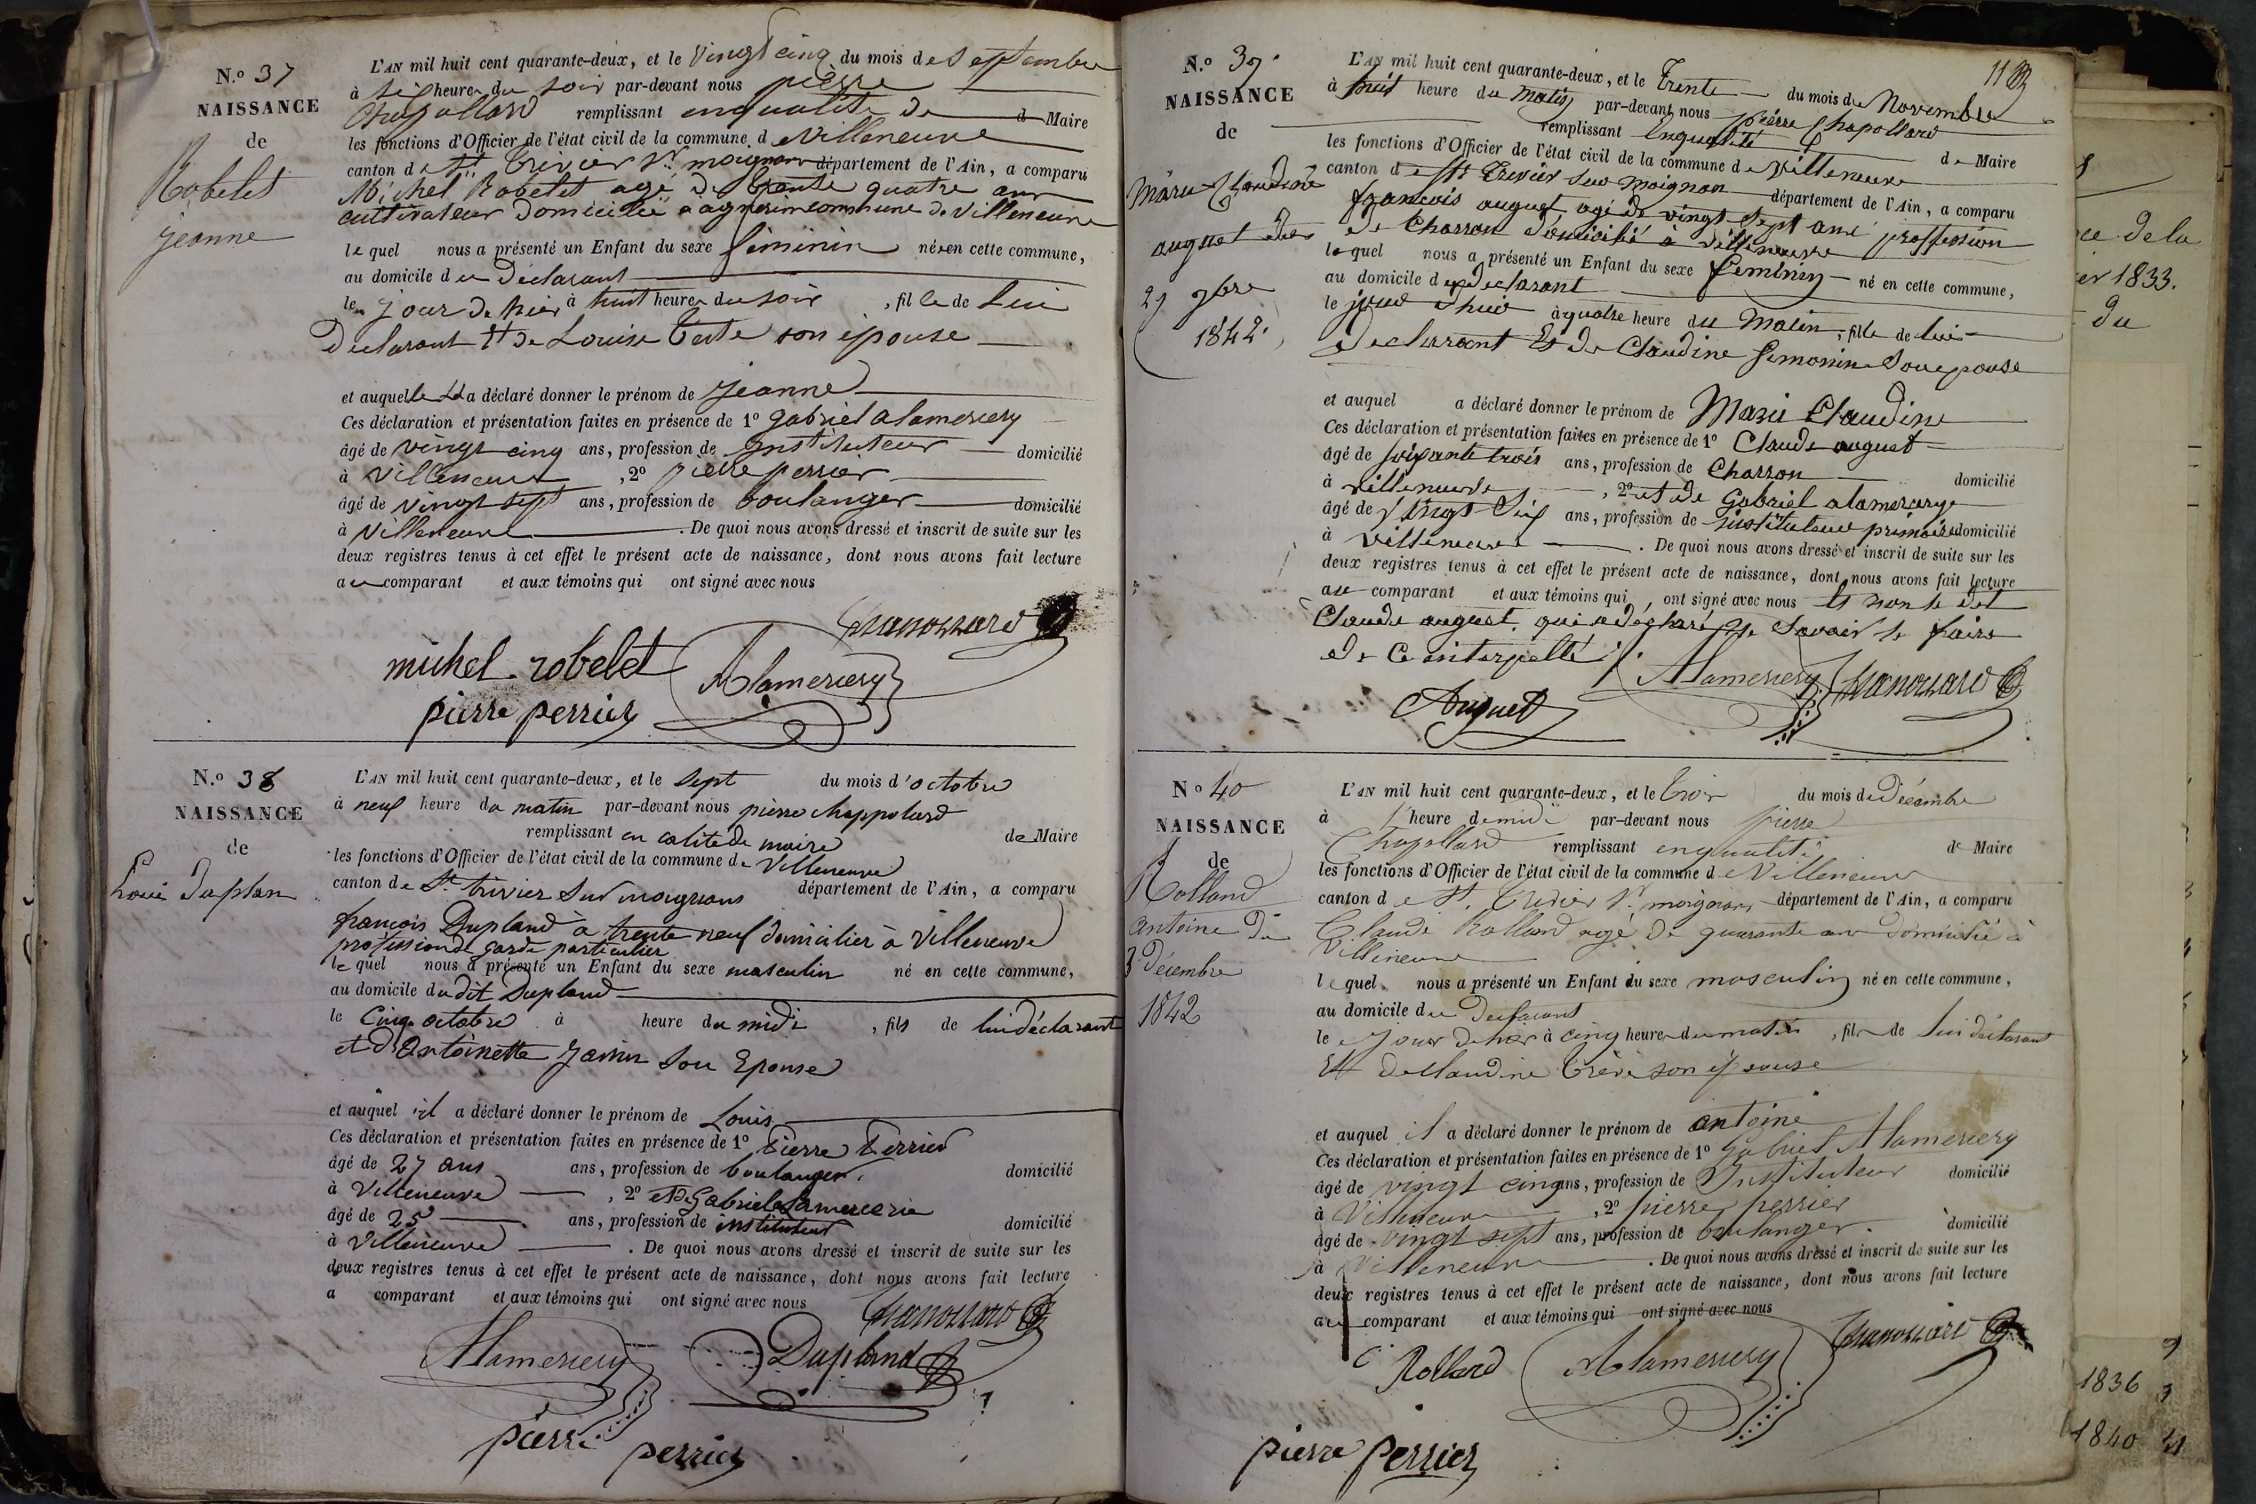 N.o 37
NAISSANCE
de
Robelet
jeanne
L'AN mil huit cent quarante-deux, et le vingt cinq du mois de Septembre
à six heures du soir par-devant nous pierre
Chapollard remplissant en qualité de Maire
les fonctions d'Officier de l'état civil de la commune de Villeneuve
canton de St Trivier Sr moignans département de l'Ain, a comparu
Michel Robelet agé de trente quatre ans
cultivateur domicilié a commune de Villeneuve
lequel nous a présenté un Enfant du sexe féminin née en cette commune,
au domicile du déclarant
le jour de hier à huit heures du soir, fille de lui
Déclarant et de Louise Terte son épouse
et auquelle il a déclaré donner le prénom de jeanne
Ces déclaration et présentation faites en présence de 1o gabriel alamercery
âgé de vingt cinq ans, profession de Instituteur domicilié
à Villeneuve, 2o pierre perrier
âgé de vingt sept ans, profession de boulanger domicilié
à Villeneuve. De quoi nous avons dressé et inscrit de suite sur les
deux registres tenus à cet effet le présent acte de naissance, dont nous avons fait lecture
au comparant et aux témoins qui ont signé avec nous
michel robelet
Alamercery
pierre perrier
N.o 38
NAISSANCE
de
Louis Duplan
L'AN mil huit cent quarante-deux, et le sept du mois d'octobre
à neuf heure du matin par-devant nous pierre chappolard
remplissant en calité de maire de Maire
les fonctions d'Officier de l'état civil de la commune de Villeneuve
canton de St trivier Sur moignans département de l'Ain, a comparu
françois Dupland à trente neuf domicilier à Villeneuve
profession de garde particulier
lequel nous a présenté un Enfant du sexe masculin né en cette commune,
au domicile du dit Dupland
le Cinq octobre à heure du midi, fils de lui déclarant
et d'Antoinette Janin Son Epouse
et auquel il a déclaré donner le prénom de Louis
Ces déclaration et présentation faites en présence de 1o Pierre Perrier
âgé de 27 ans ans, profession de boulanger domicilié
à Villeneuve, 2o et de Gabriel lamercerie
âgé de 25 ans, profession de instituteur domicilié
à Villeneuve. De quoi nous avons dressé et inscrit de suite sur les
deux registres tenus à cet effet le présent acte de naissance, dont nous avons fait lecture
a comparant et aux témoins qui ont signé avec nous
Alamercery Dupland
pierre perrier
11
N.o 39
NAISSANCE
de
Marie Claudine
auguet
29 9bre
1842
L'AN mil huit cent quarante-deux, et le Trente du mois de Novembre
à huit heure du Matin par-devant nous pierre Chapollard
remplissant En qualité de Maire
les fonctions d'Officier de l'état civil de la commune de Villeneuve
canton de St Trivier Sur Moignan département de l'Ain, a comparu
françois auguet agé de vingt sept ans proffession
de Charron domicilié à Villeneuve
lequel nous a présenté un Enfant du sexe féminin né en cette commune,
au domicile du déclarant
le jour d'hier à quatre heure du Matin, fille de lui
déclarant Et de Claudine Simonin Son epouse
et auquel a déclaré donner le prénom de Marie Claudine
Ces déclaration et présentation faites en présence de 1o Claude auguet
âgé de soixante trois ans, profession de Charron domicilié
à Villeneuve, 2o et de Gabriel alamercery
âgé de Vingt Six ans, profession de instituteur primaire domicilié
à Villeneuve. De quoi nous avons dressé et inscrit de suite sur les
deux registres tenus à cet effet le présent acte de naissance, dont nous avons fait lecture
au comparant et aux témoins qui ont signé avec nous Et non le dit
Claude auguet qui a déclaré ne Savoir le faire
de Ce interpellé
Alamercery
Auguet
No 40
NAISSANCE
de
Rolland
antoine du
3 Décembre
1842
L'AN mil huit cent quarante-deux, et le trois du mois de Décembre
à 1 heure de midi par-devant nous pierre
Chapollard remplissant en qualité de Maire
les fonctions d'Officier de l'état civil de la commune de Villeneuve
canton de St. Trivier Sr moignans département de l'Ain, a comparu
Claude Rolland agé de quarante ans domicilié à
Villeneuve
lequel nous a présenté un Enfant du sexe masculin né en cette commune,
au domicile du Déclarant
le jour de hier à cinq heures du matin, fils de lui déclarant
Et de Claudine Trève son épouse
et auquel il a déclaré donner le prénom de antoine
Ces déclaration et présentation faites en présence de 1o Gabriel Alamercery
âgé de vingt cinq ans, profession de Instituteur domicilié
à Villeneuve, 2o pierre perrier
âgé de vingt sept ans, profession de boulanger domicilié
à Villeneuve. De quoi nous avons dressé et inscrit de suite sur les
deux registres tenus à cet effet le présent acte de naissance, dont nous avons fait lecture
au comparant et aux témoins qui ont signé avec nous
C. Rolland Alamercery
pierre perrier
de la
1833.
du
1836
1840